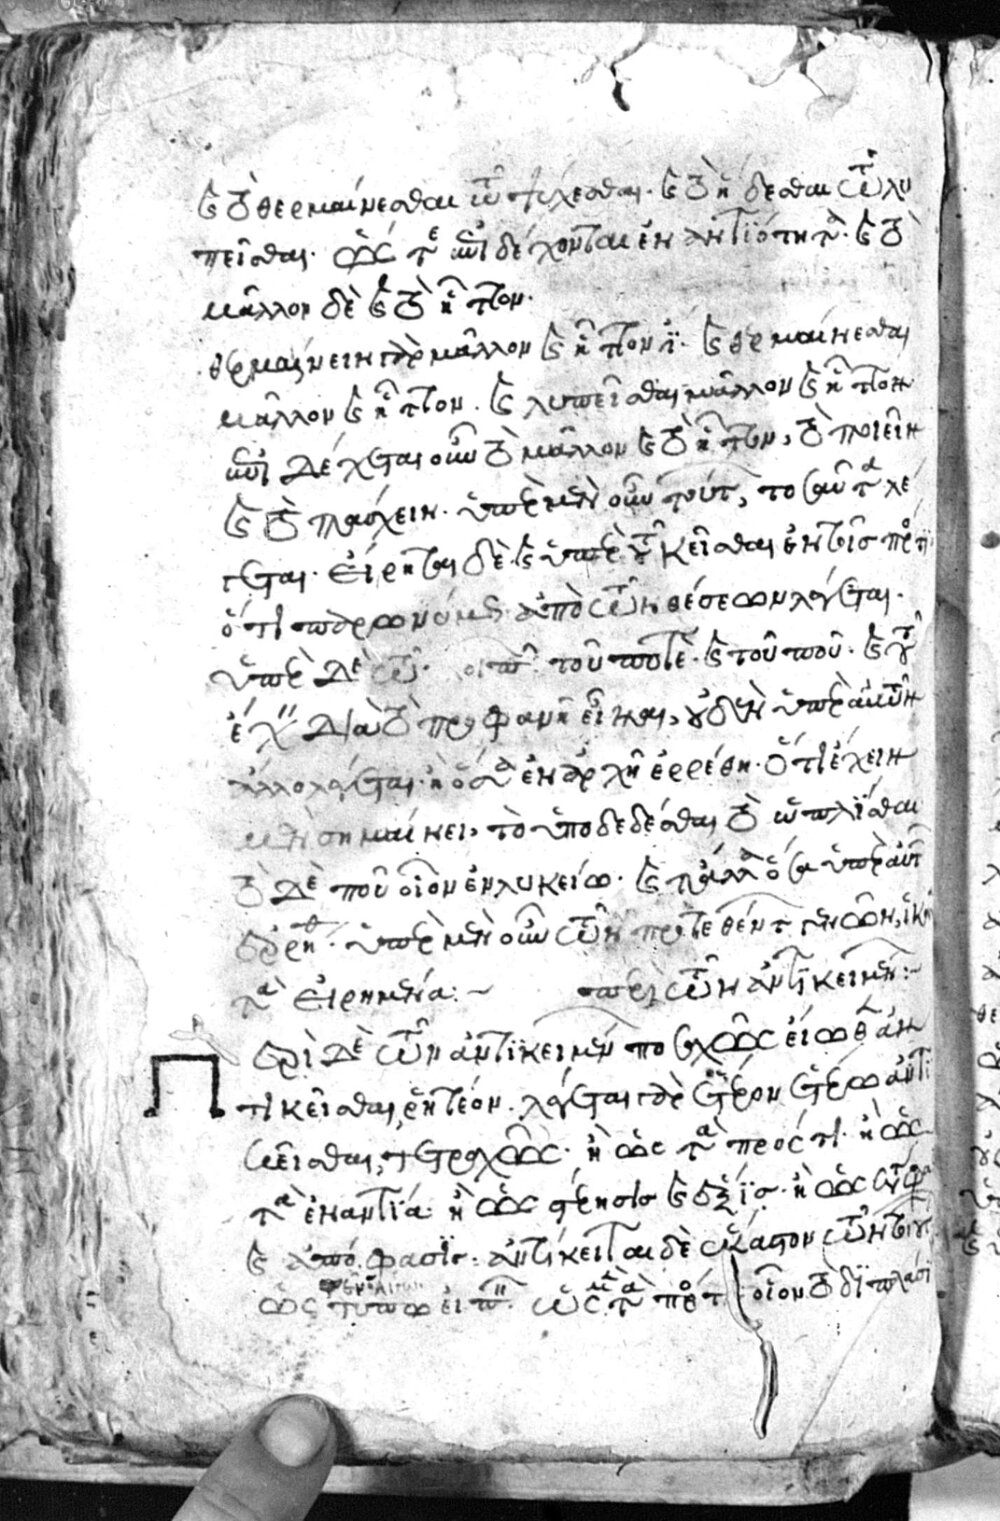 καὶ τὸ θερμαίνεσθαι τῶ ψύχεσθαι· καὶ τὸ ἥδεσθαι τῶ λυ
πεῖσθαι· ὥστε ἐπιδέχονται ἐναντιότητα· καὶ τὸ
μᾶλλον δὲ καὶ τὸ ἧττον·
θερμαίνειν γὰρ μᾶλλον καὶ ἧττόν ἐστι· καὶ θερμαίνεσθαι
μᾶλλον καὶ ἧττον· καὶ λυπεῖσθαι μᾶλλον καὶ ἧττον
ἐπιδέχεται οὖν τὸ μᾶλλον καὶ τὸ ἧττον, τὸ ποιεῖν
καὶ τὸ πάσχειν· ὑπὲρ μὲν οὖν τούτων, τοσαῦτα λέ
γεται· εἴρηται δὲ καὶ ὑπὲρ τοῦ κεῖσθαι ἐν τοῖς πρός τι
ὅτι παρωνύμως ἀπὸ τῶν θέσεων λέγεται·
ὑπὲρ δὲ τῶν τοῦ ποτὲ· καὶ τοῦ ποῦ· καὶ τοῦ
ἔχειν διὰ τὸ προφανῆ εἶναι, οὐδὲν ὑπὲρ αὐτῶν
ἄλλο λέγεται· ἢ ὅσα ἐν ἀρχῆ ἐρρέθη· ὅτι ἔχειν
μὲν σημαίνει, τὸ ὑποδεδέσθαι τὸ ὡπλίσθαι
τὸ δὲ ποῦ οἷον ἐν λυκείω· καὶ τἄλλα ὅσα ὑπὲρ αὐτῶν
ἐρρήθη· ὑπὲρ μὲν οὖν τῶν προτεθέντων γενῶν, ἱκανὰ
τὰ εἰρημένα:~ περὶ τῶν ἀντικειμένων:~
Περὶ δὲ τῶν ἀντικειμένων ποσαχῶς εἴωθεν ἀν
τικεῖσθαι ῥητέον· λέγεται γὰρ ἕτερον ἑτέρω ἀντι
κεῖσθαι, τετραχῶς· ἢ ὡς τὰ πρός τι· ἢ ὡς
τὰ ἐναντία· ἢ ὡς στέρησις καὶ ἕξις· ἢ ὡς κατάφασις
καὶ ἀπόφασις· ἀντίκειται δὲ ἕκαστον τῶν τοιούτων
ὡς τύπω εἰπεῖν· ὡς μὲν τὰ πρός τι οἷον τὸ διπλάσι